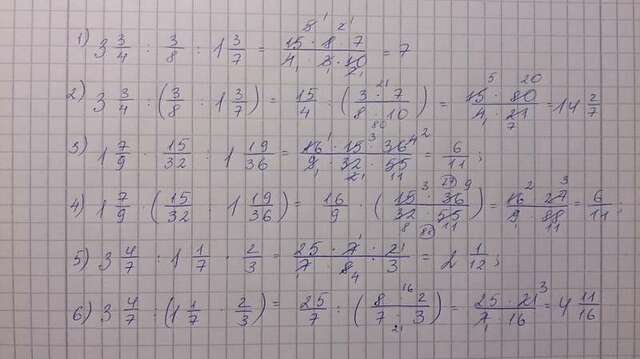 1) 3 3/4 : 3/8 : 1 3/7 = (15 · 8 · 7)/(4 · 3 · 10) = 7
2) 3 3/4 : (3/8 : 1 3/7) = 15/4 : ((3 · 7)/(8 · 10)) = (15 · 80)/(4 · 21) = 14 2/7
3) 1 7/9 · 15/32 : 1 19/36 = (16 · 15 · 36)/(9 · 32 · 55) = 6/11 ;
4) 1 7/9 · (15/32 : 1 19/36) = 16/9 · ((15 · 36)/(32 · 55)) = (16 · 27)/(9 · 88) = 6/11 ;
5) 3 4/7 : 1 1/7 · 2/3 = (25 · 7 · 2)/(7 · 8 · 3) = 2 1/12 ;
6) 3 4/7 : (1 1/7 · 2/3) = 25/7 : ((8 · 2)/(7 · 3)) = (25 · 21)/(7 · 16) = 4 11/16